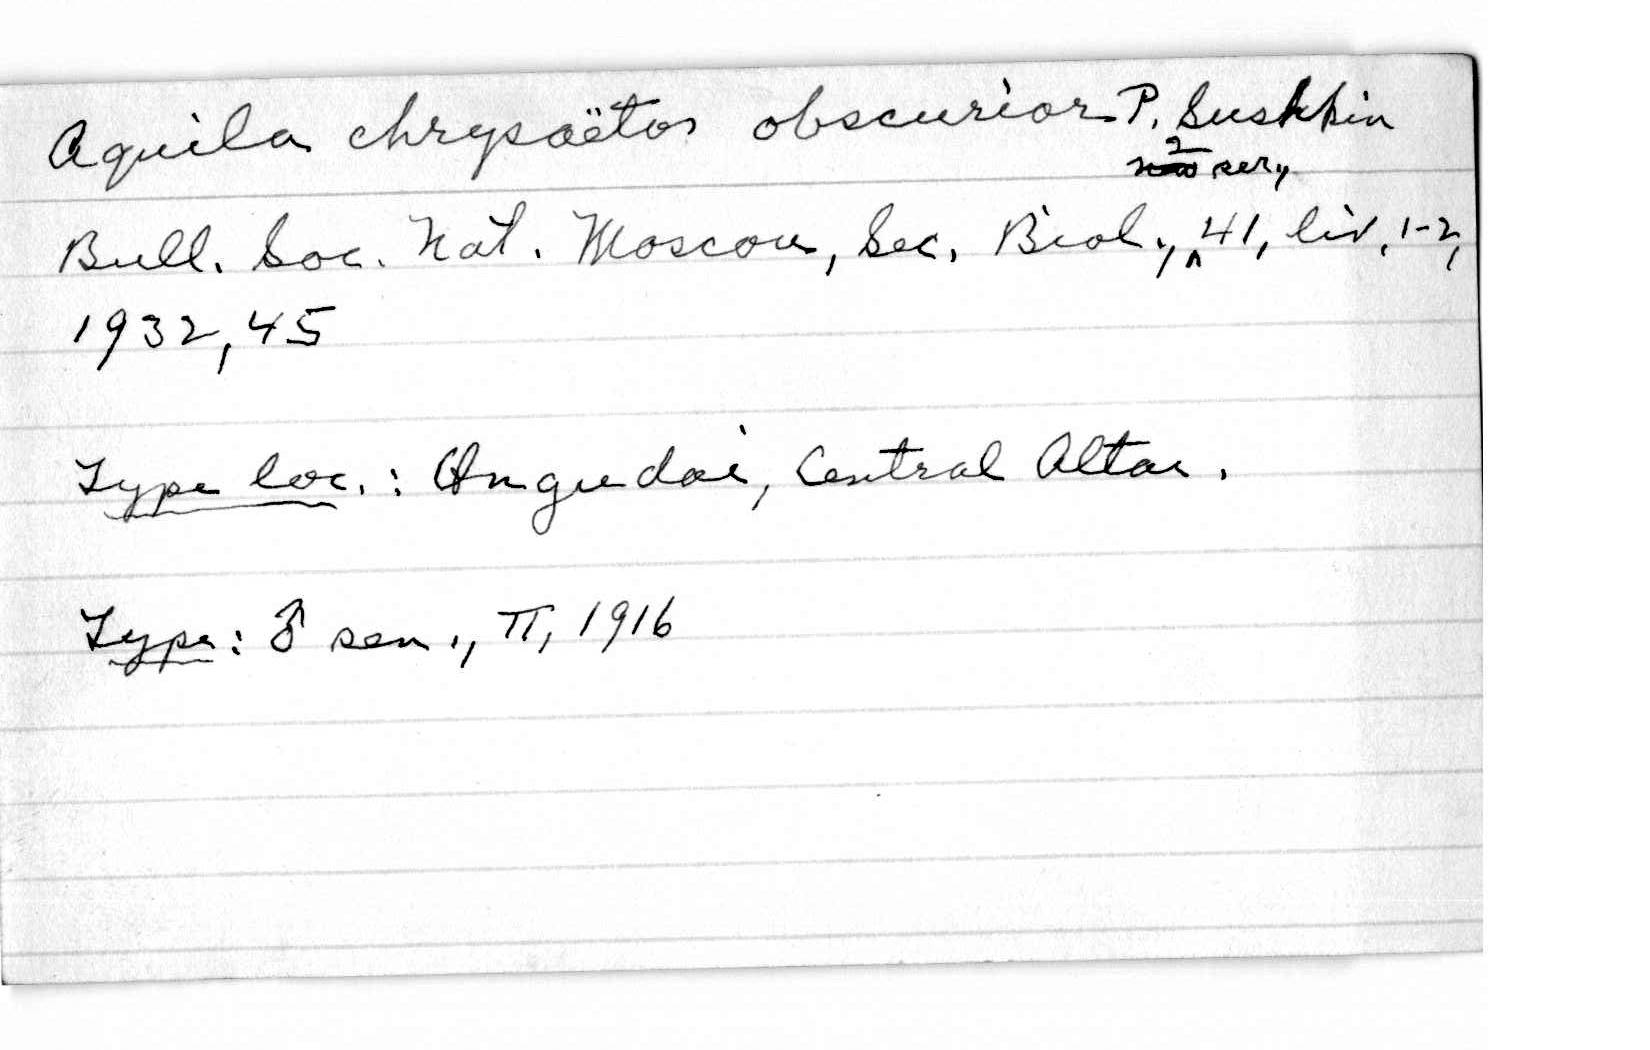 Aquila chrysaëtos obscurior P. Sushkin
2 ser,,
Bull. Soc. Nat. Moscou, Sec. Biol., ^ 41, liv. 1-2,
1932, 45
Type loc.: Ongudai, Central Altai.
Type: ♂ sen., II, 1916